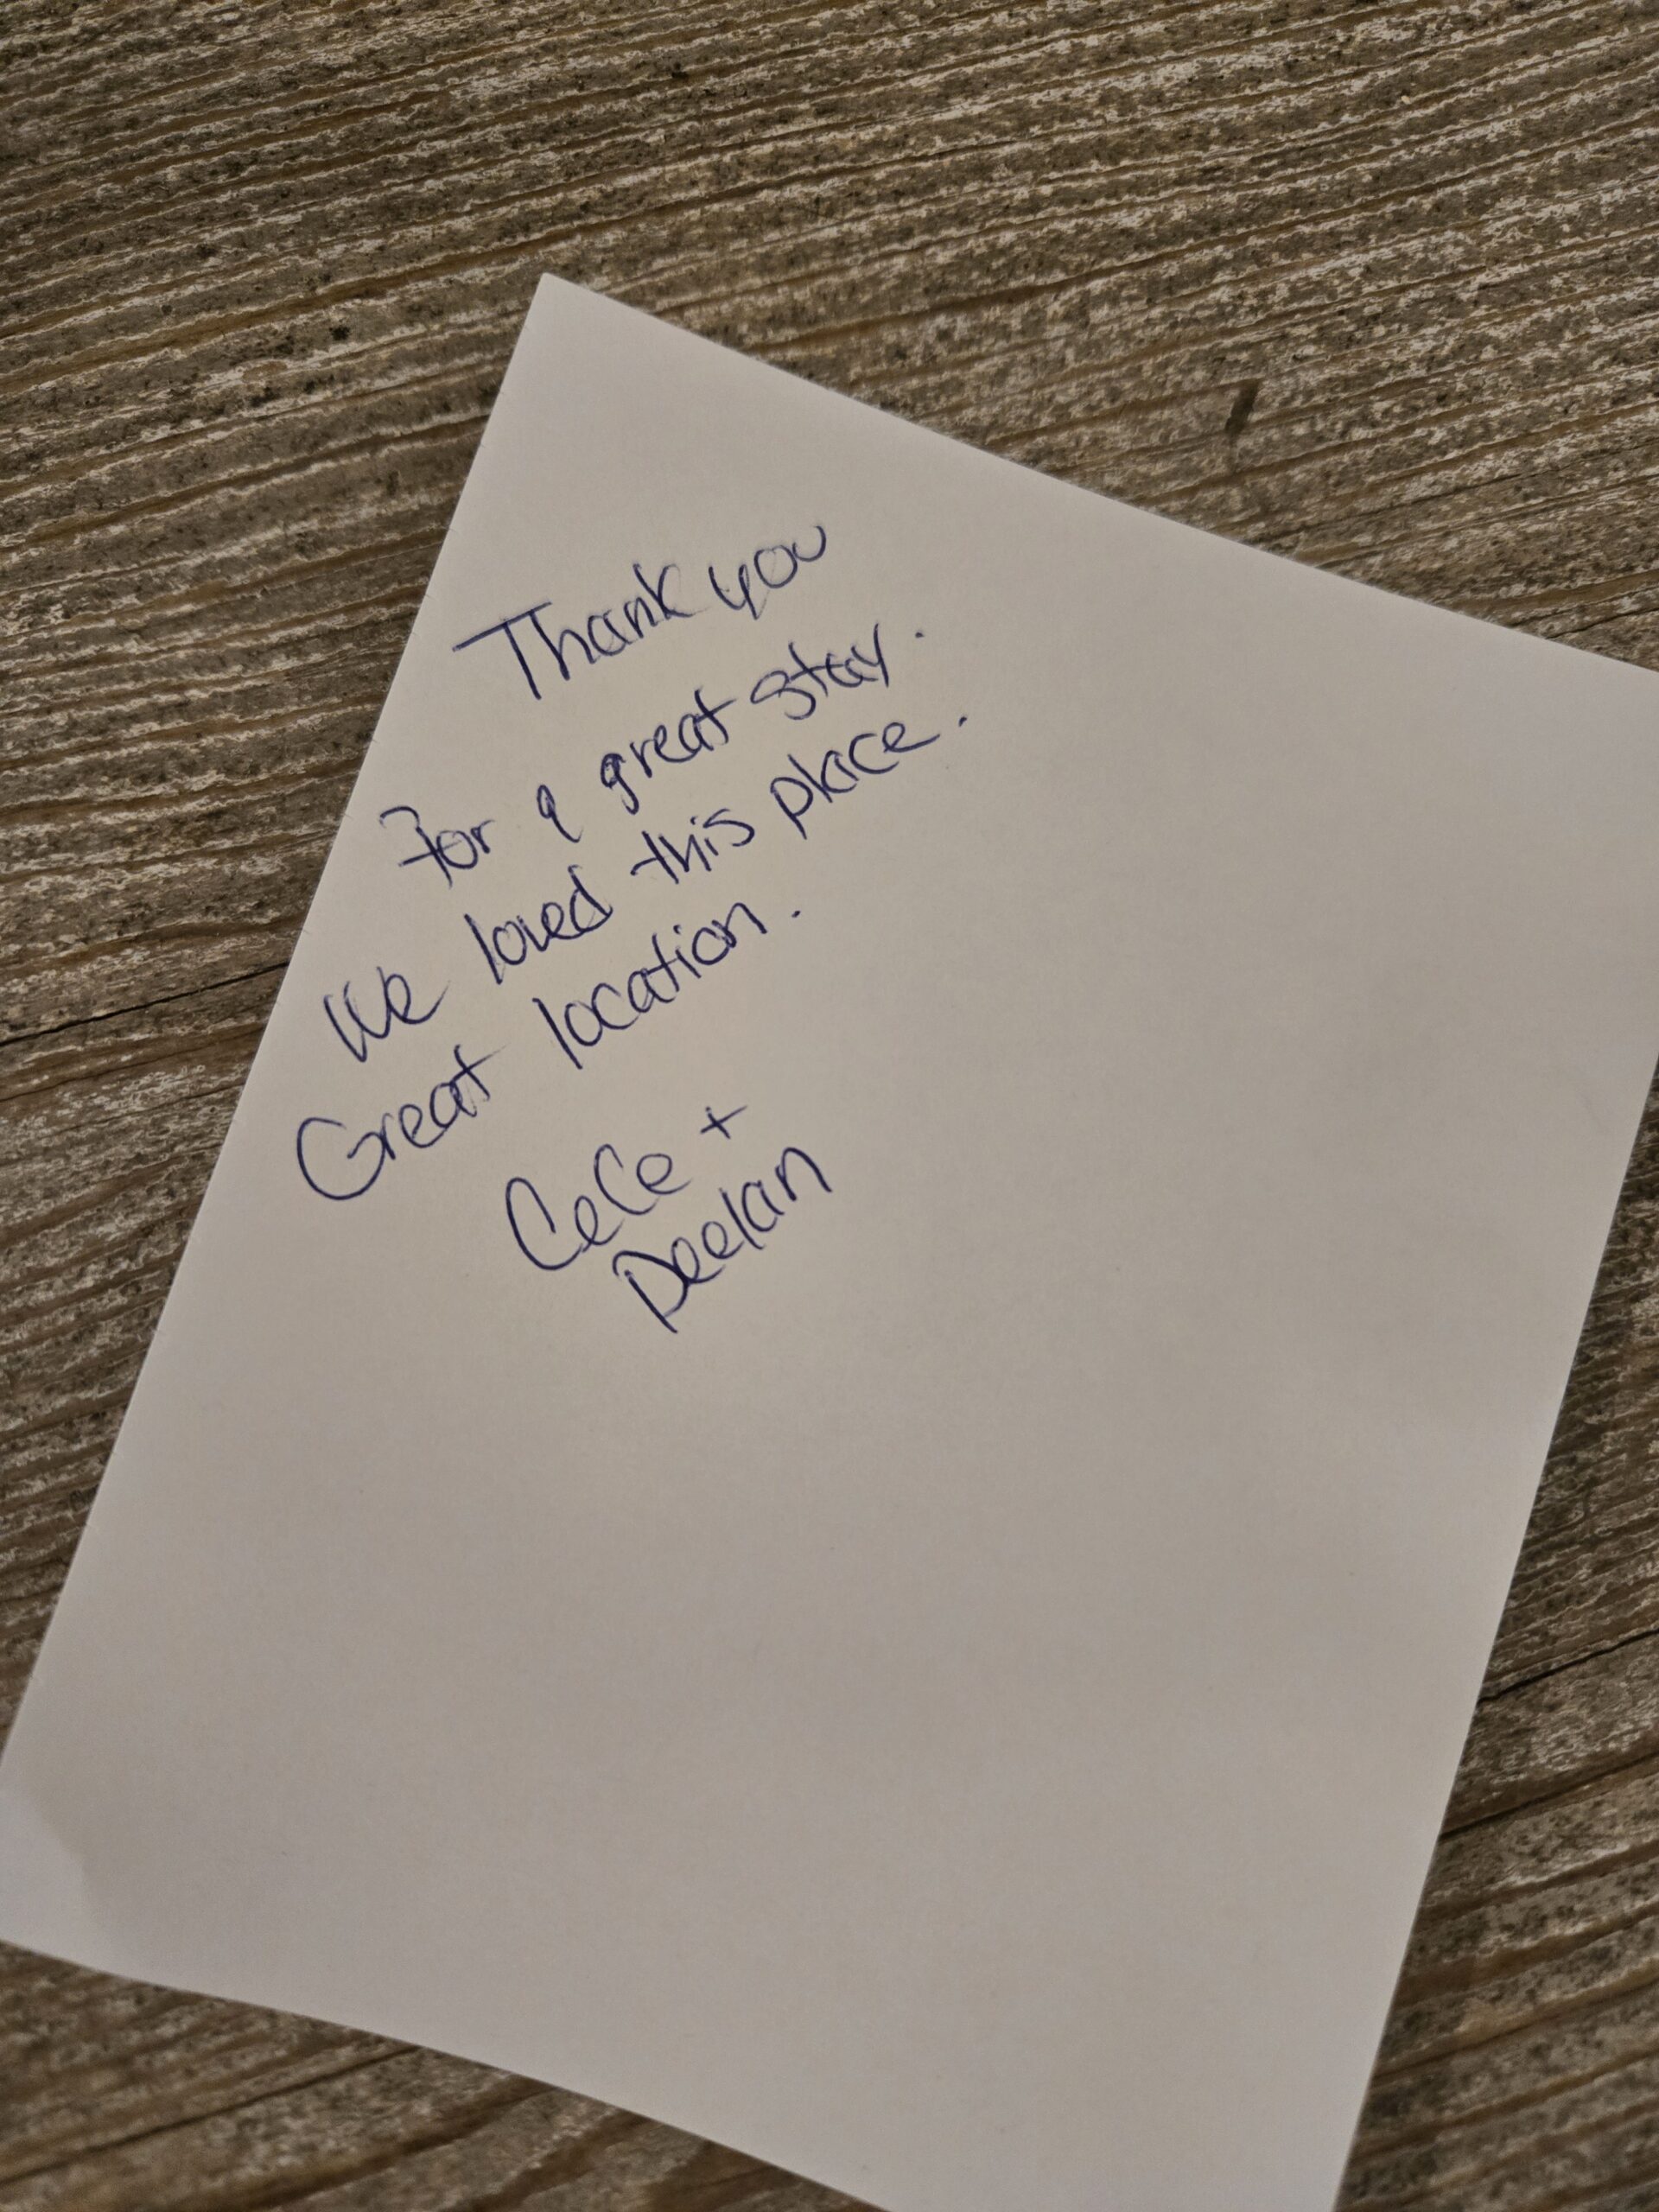 Thank you
For a great stay.
We loved this place.
Great location.
CeCe +
Deelan